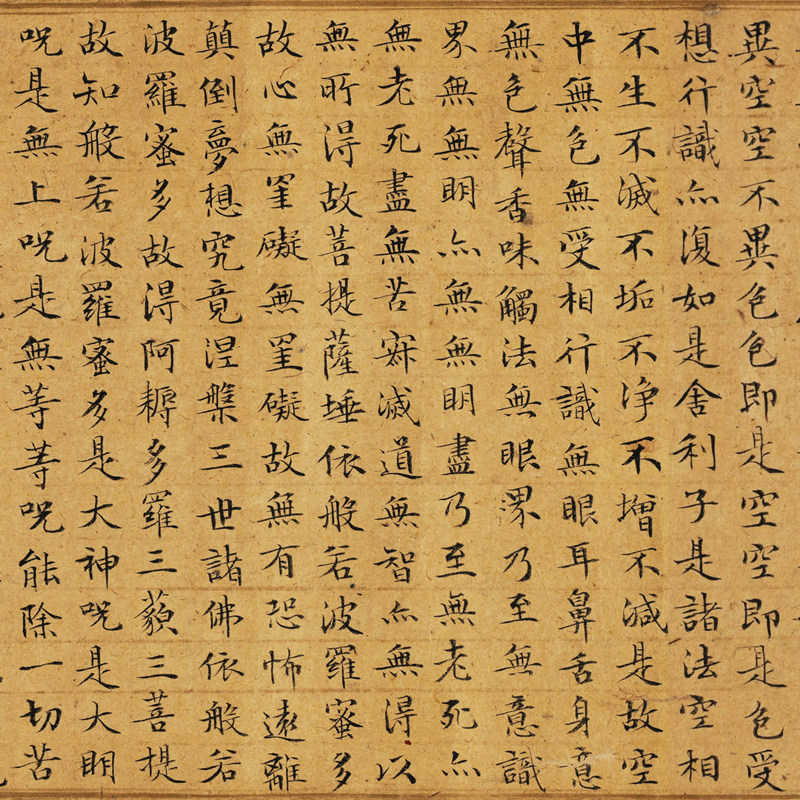 異空空不異色色即是空空即是色受
想行識亦復如是舍利子是諸法空相
不生不滅不垢不净不增不減是故空
中無色無受相行識無眼耳鼻舌身意
無色聲香味觸法無眼界乃至無意識
界無無明亦無無明盡乃至無老死亦
無老死盡無苦寂滅道無智亦無得以
無所得故菩提薩埵依般若波羅蜜多
故心無罣礙無罣礙故無有恐怖遠離
顛倒夢想究竟涅槃三世諸佛依般若
波羅蜜多故得阿耨多羅三藐三菩提
故知般若波羅蜜多是大神呪是大明
呪是無上呪是無等等呪能除一切苦